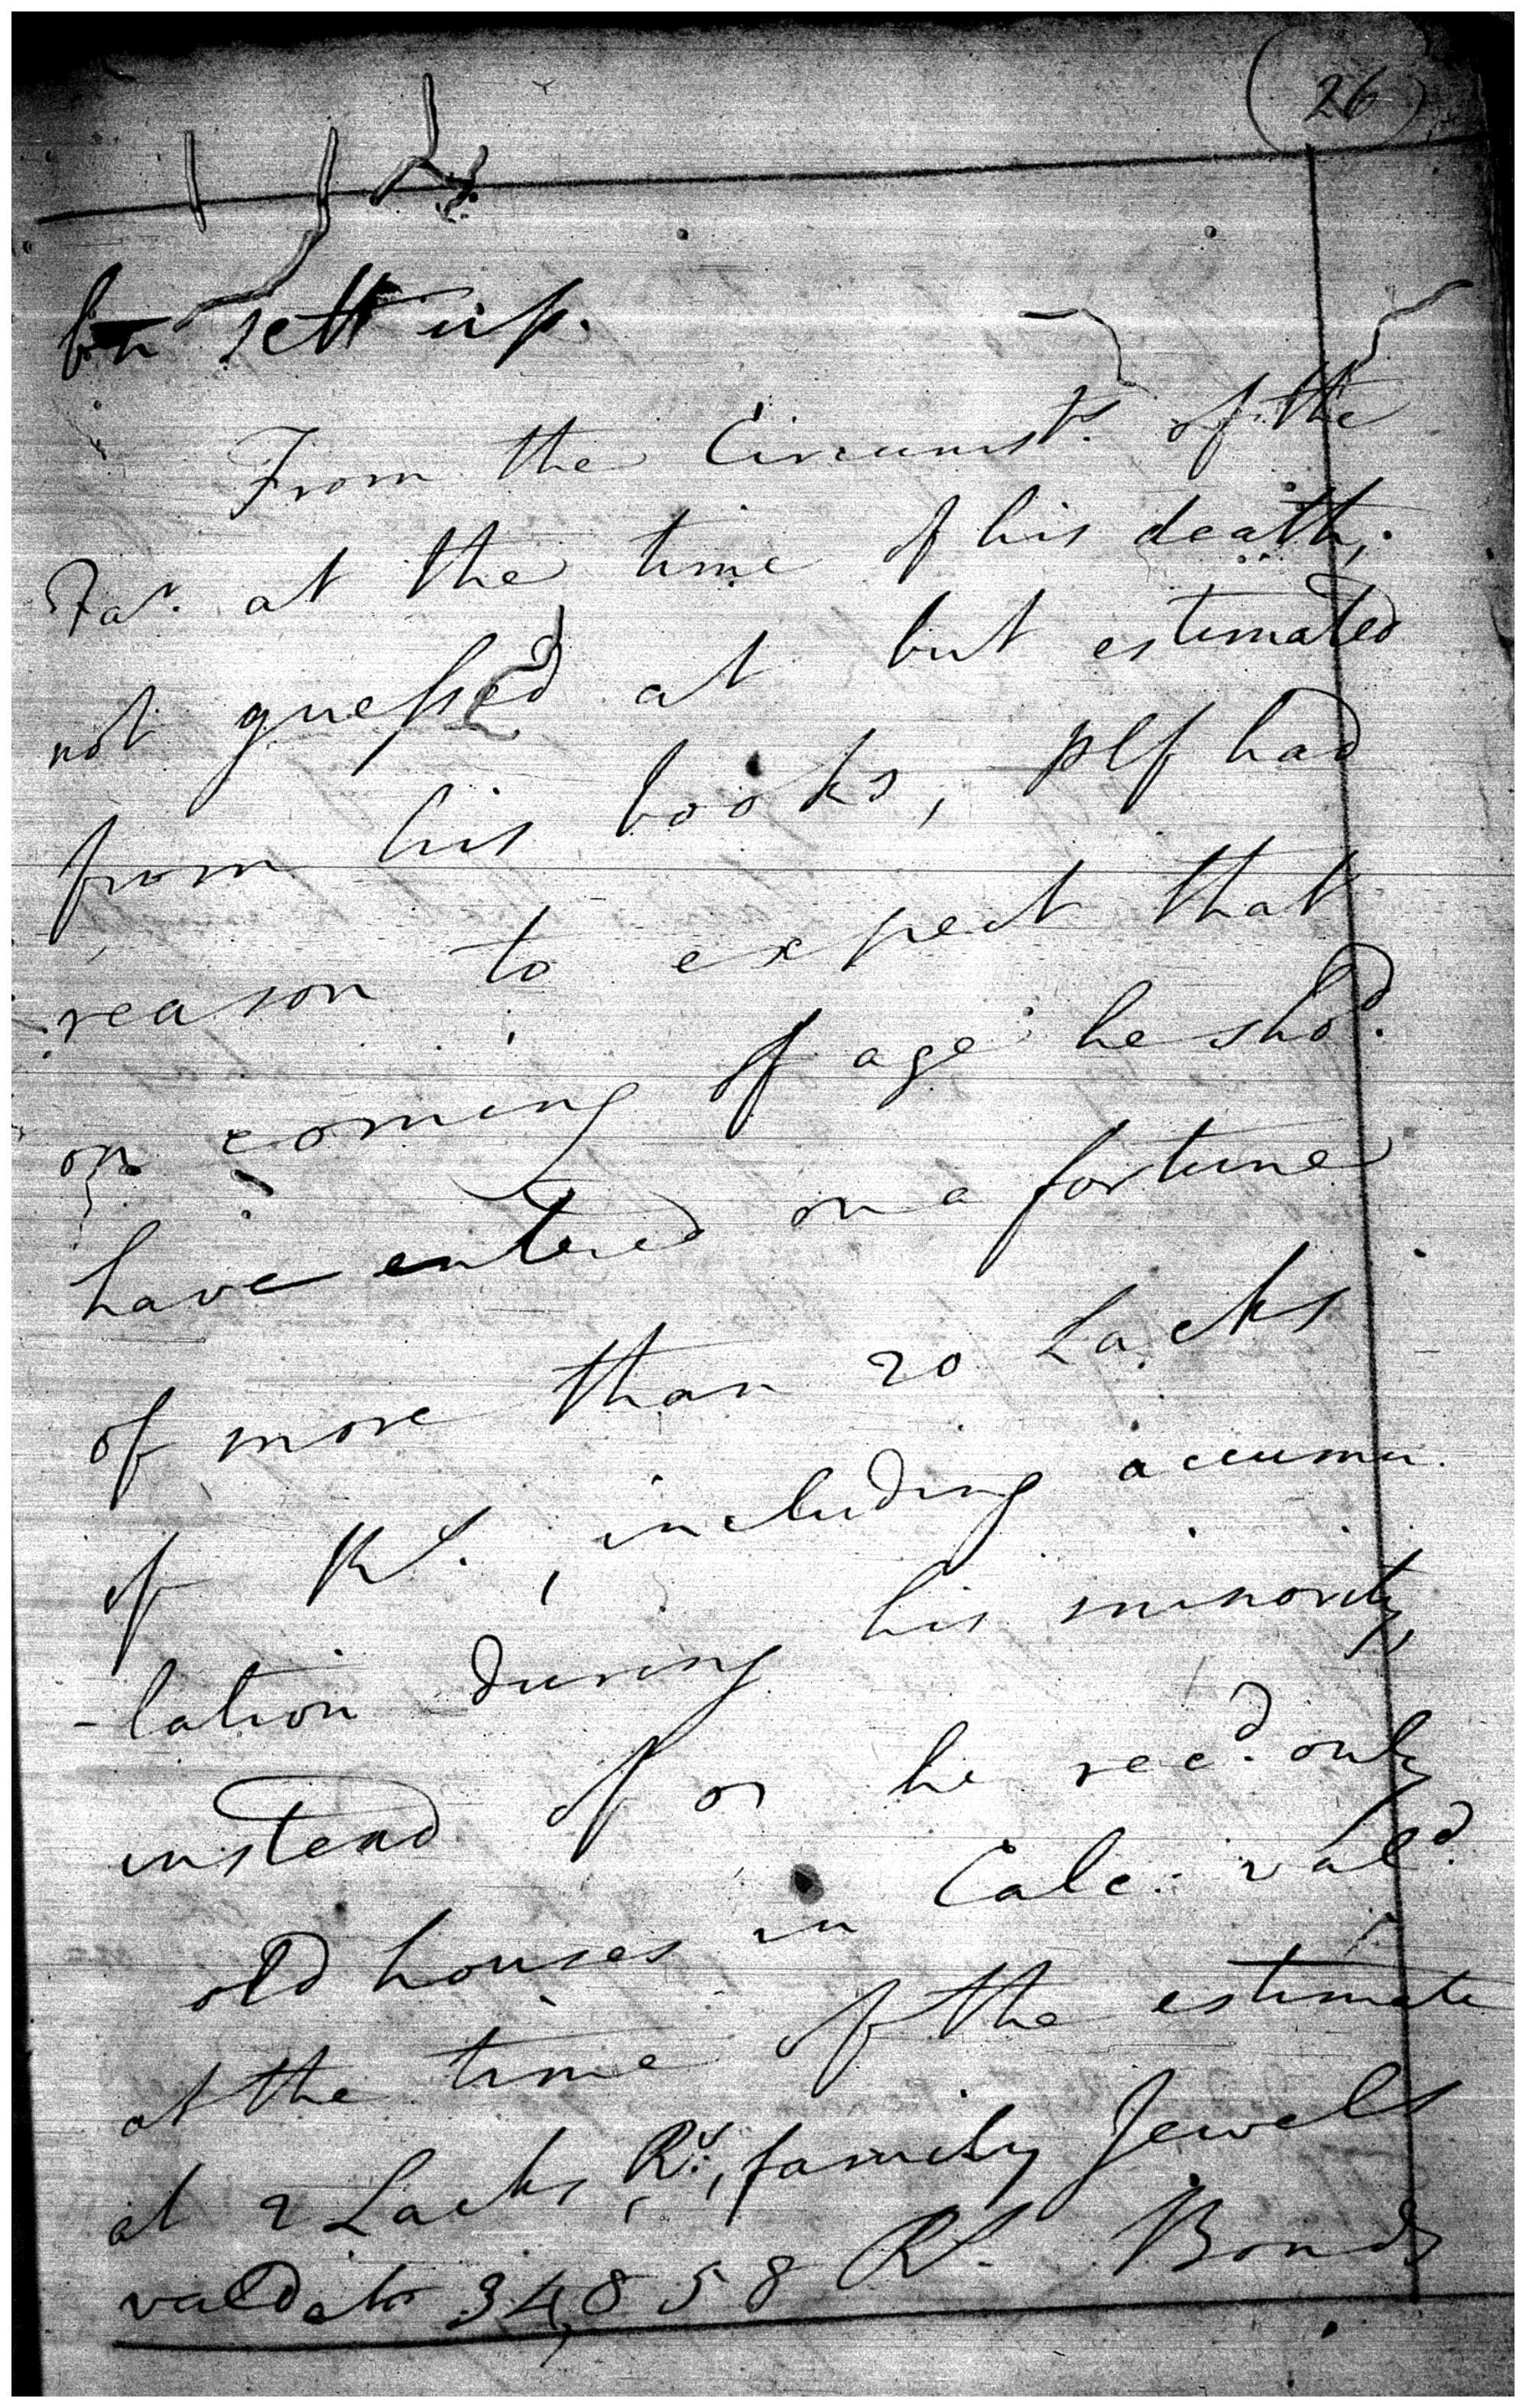 26
sett up.
From the Circumsts. of the
Far. at the time of his death,
not guessed at but estimated
from his books, plf had
reason to expect that
on coming of age he shod.
have entered on a fortune
of more than 20 Lacks
of Rs., including accumu-
-lation during his minority,
instead of he recd. only
old houses in Calc: vald.
at the time of the estimate
at 2 Lacks Rs., family Jewels
vald at 34,858 Rs. Bonds